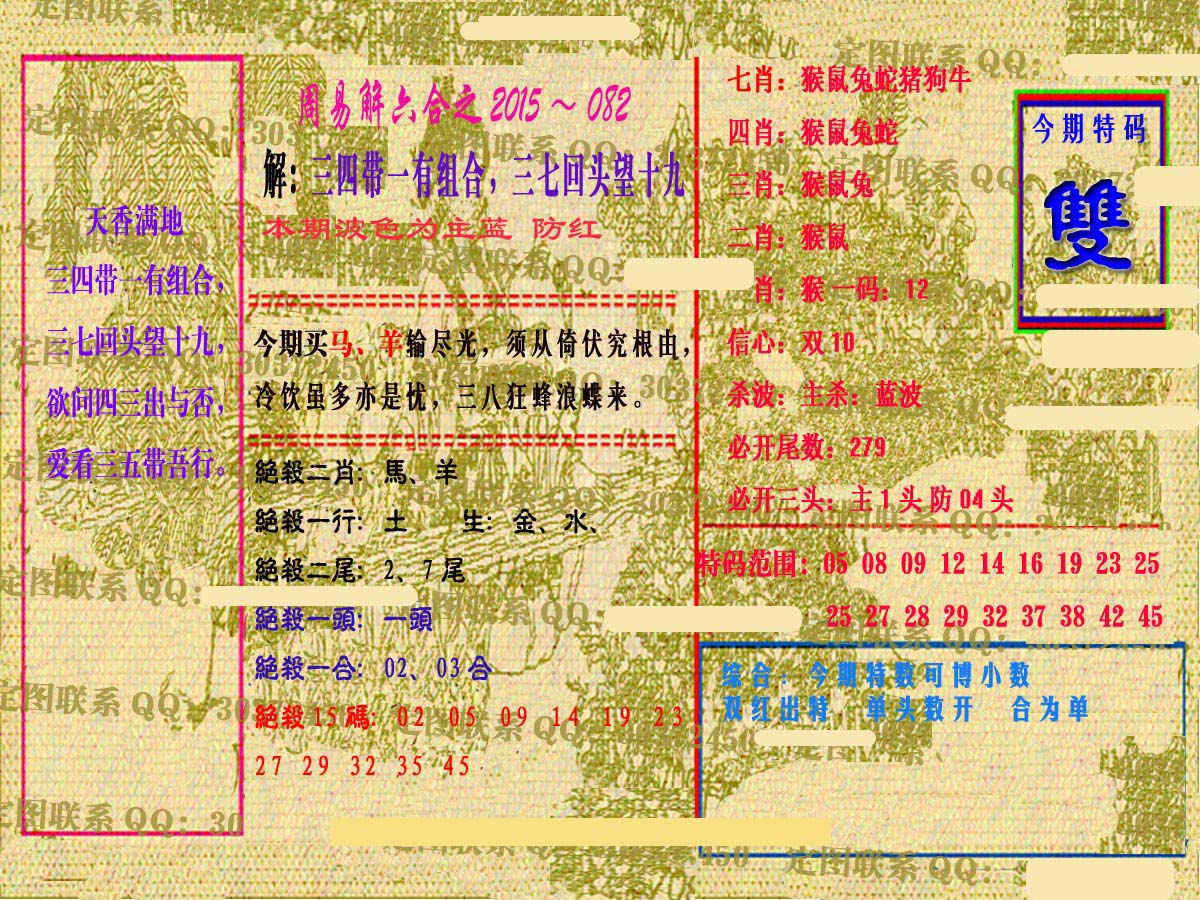 周易解六合之2015～082
解：三四带一有组合，三七回头望十九
本期波色为主蓝 防红
天香满地
三四带一有组合，
三七回头望十九，
欲问四三出与否，
爱看三五带吾行。
今期买马、羊输尽光，须从倚伏究根由，
冷饮虽多亦是忧，三八狂蜂浪蝶来。
絕殺二肖：馬、羊
絕殺一行：土 生：金、水、
絕殺二尾：2、7尾
絕殺一頭：一頭
絕殺一合：02、03合
絕殺15碼：02 05 09 14 19 23
27 29 32 35 45
七肖：猴鼠兔蛇猪狗牛
四肖：猴鼠兔蛇
三肖：猴鼠兔
二肖：猴鼠
肖：猴 一码：12
信心：双10
杀波：主杀：蓝波
必开尾数：279
必开三头：主1头防04头
今期特码
雙
特码范围：05 08 09 12 14 16 19 23 25
25 27 28 29 32 37 38 42 45
综合：今期特数可博小数
双红出特 单头数开 合为单
定图联系QQ：